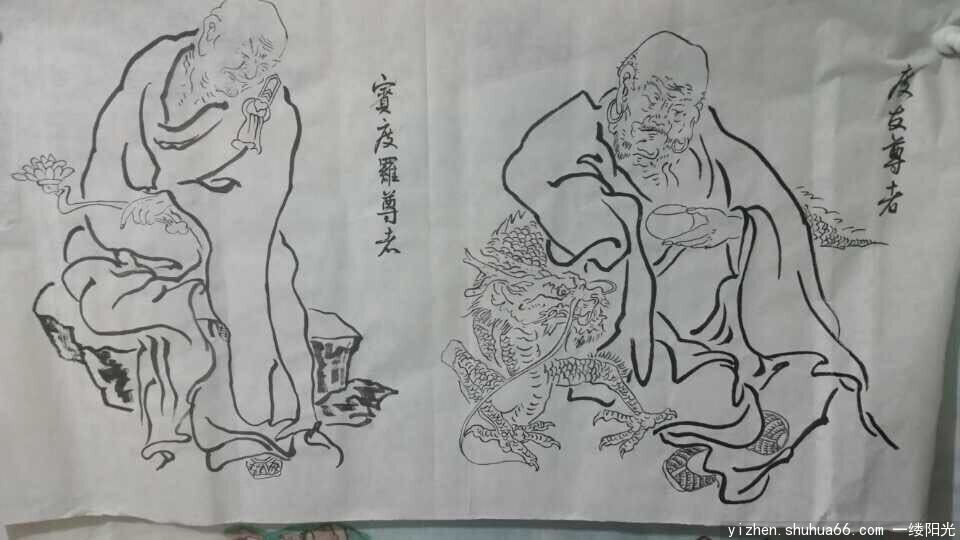 賓度羅尊者
度友尊者
yizhen.shuhua66.com 一缕阳光